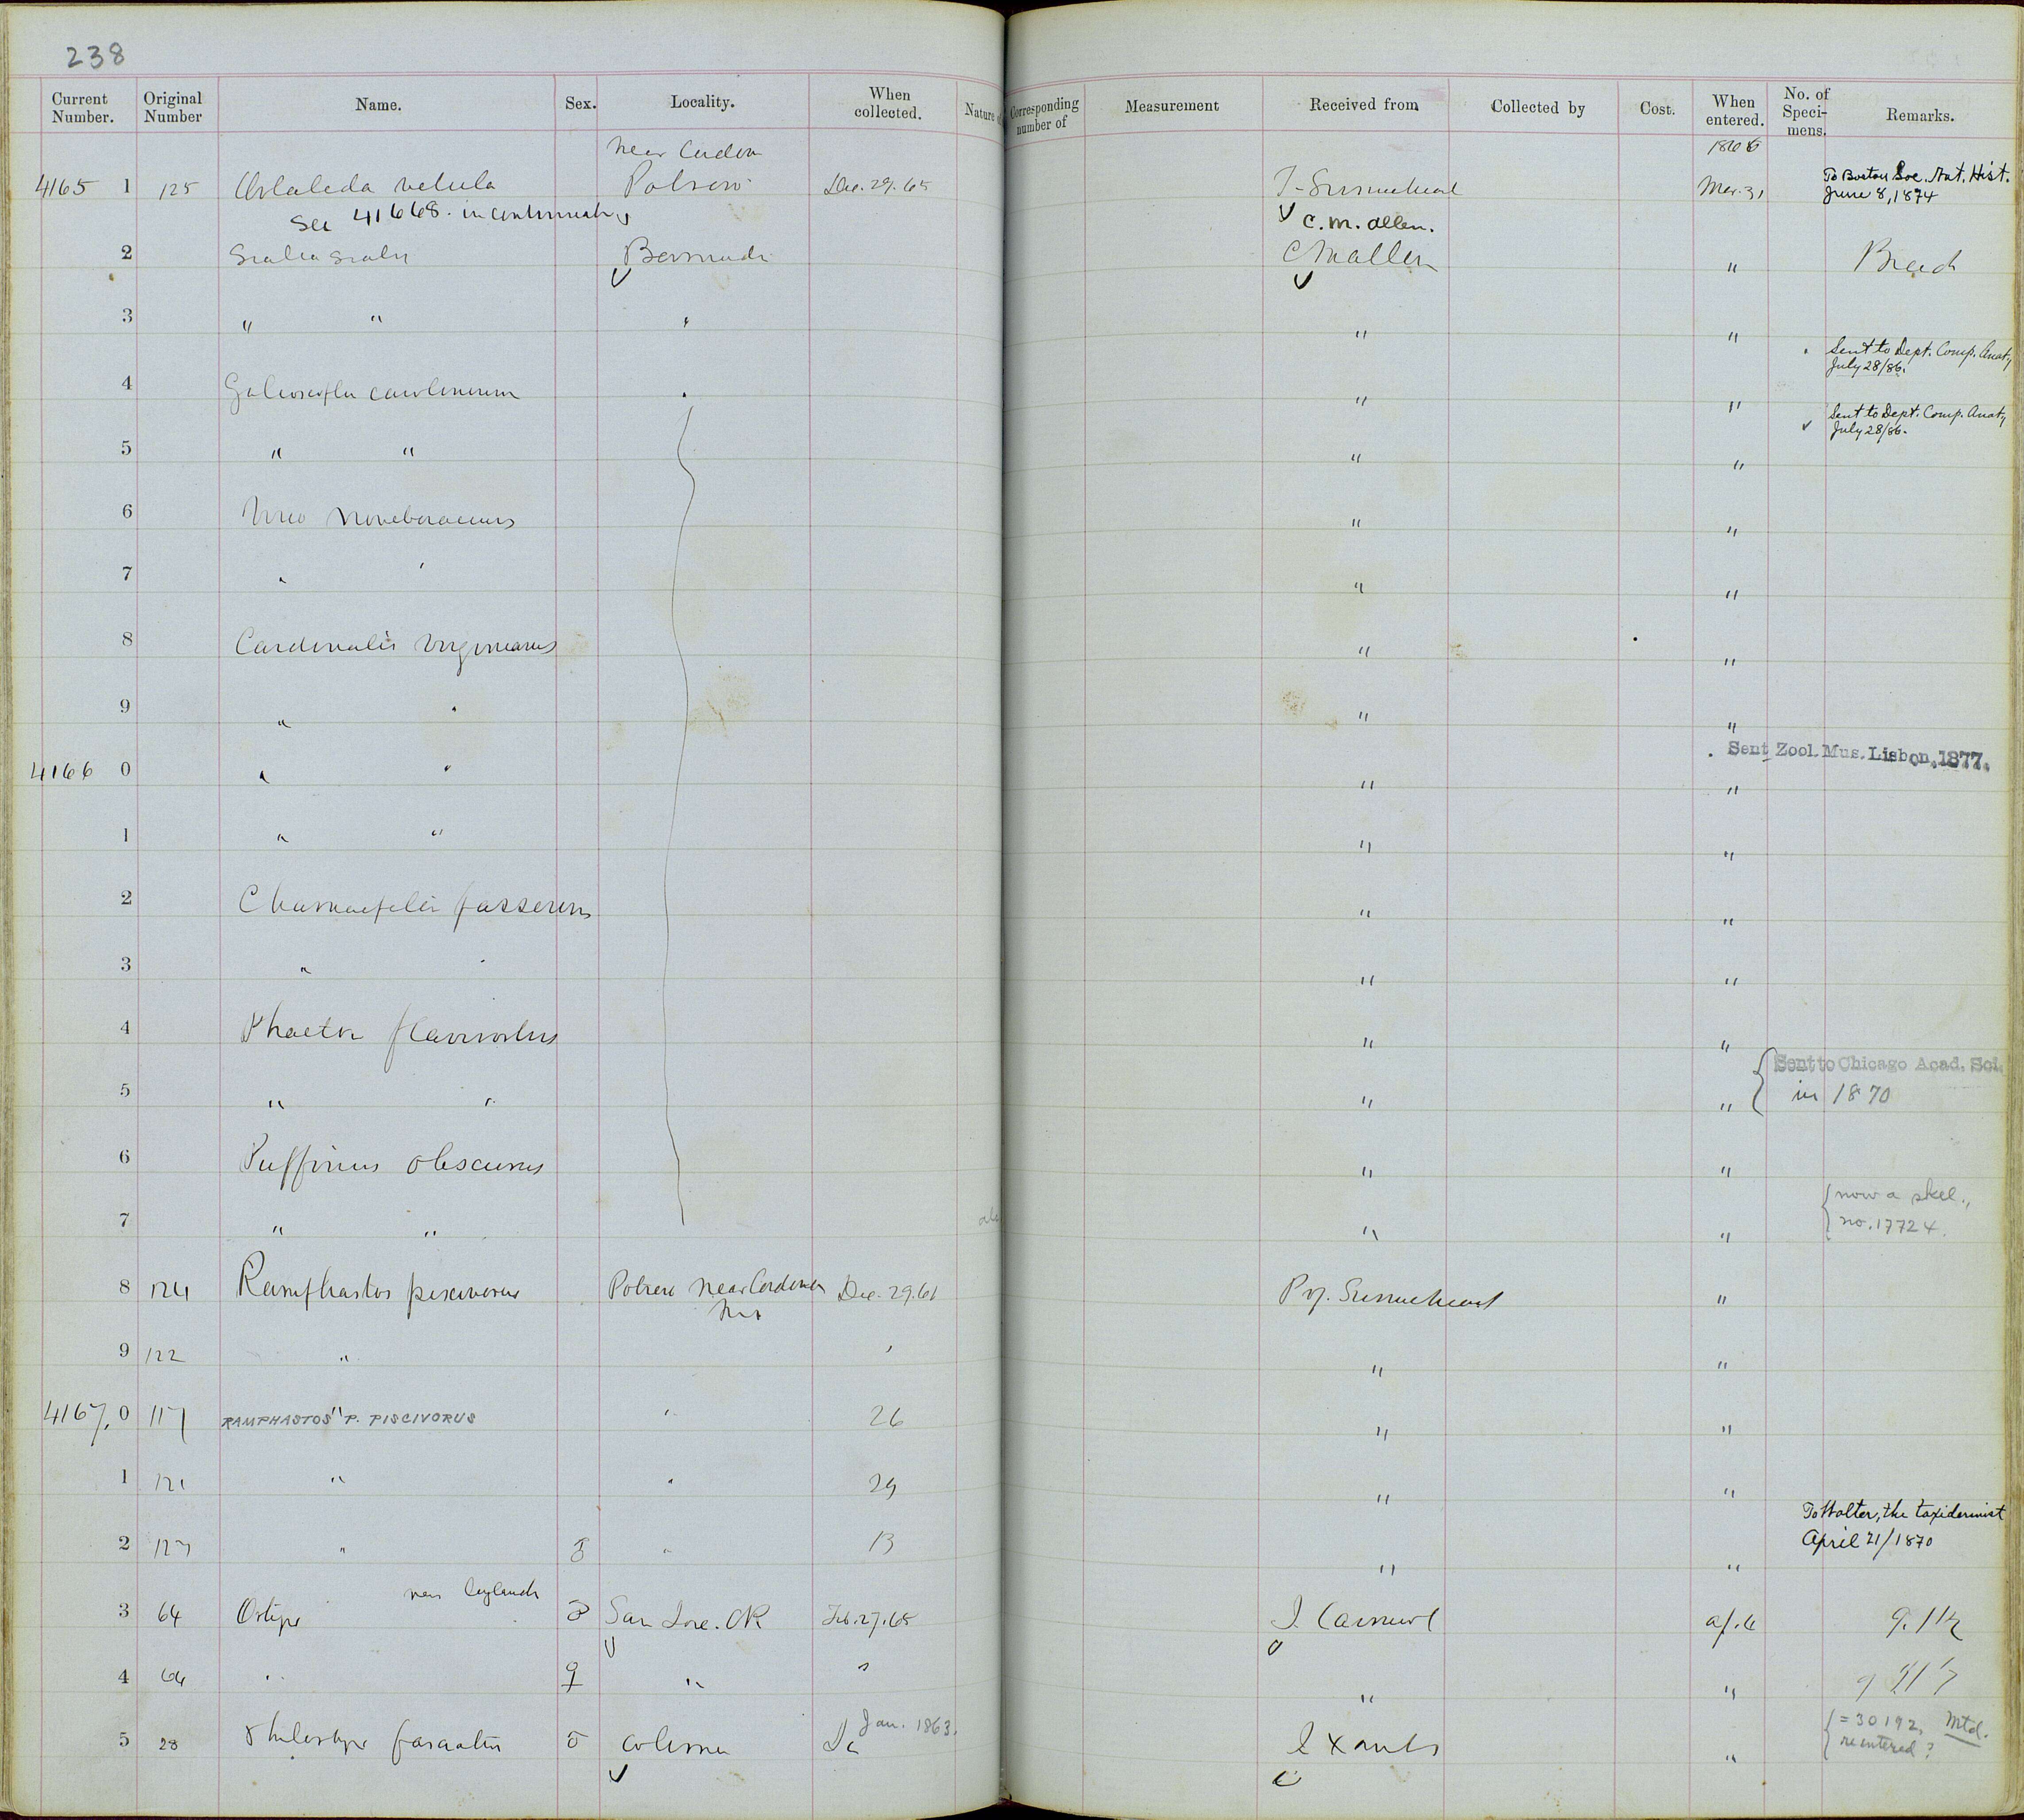 238
Current Number. Original Number Name. Sex. Locality. When collected. Nature of Corresponding number of Measurement Received from Collected by Cost. When entered. No. of Specimens. Remarks.
Near Cordova 1866
4165 1 125 Ortalida vetula Potrero Dec. 29. 65 F. Sumichrast Mar. 31 To Boston Soc. Nat. Hist. June 8, 1874
See 41668. in continuation C. M. Allen.
2 Sialia sialis Bermuda C M Allen " Breed
3 " " " " "
Sent to Dept. Comp. Anaty July 28/86.
4 Galeoscoptes carolinensis " " "
Sent to Dept. Comp. Anaty July 28/86.
5 " " " "
6 Vireo noveboracensis " "
7 " " " "
8 Cardinalis virginianus " "
9 " " " "
Sent Zool. Mus. Lisbon, 1877.
4166 0 " " " "
1 " " " "
2 Chamaepelia passerina " "
3 " " " "
4 Phaeton flavirostris " "
Sent to Chicago Acad. Sci.
5 " " " " in 1870
6 Puffinus obscurus " "
now a skel.,
7 " " alc " " no. 17724.
8 124 Ramphastos piscivorus Potrero near Cordova Dec. 29. 65 Prf. Sumichrast "
Mex
9 122 " " " "
4167. 0 117 RAMPHASTOS " P. PISCIVORUS " 26 " "
1 121 " " 29 " "
To Walter, the taxidermist
2 127 " " 13 " " April 21/1870
3 64 Ortyx near leylandi San Jose. CR Feb. 27. 65 J. Carmiol Ap. 6
4 64 " ♀ " " " "
Jan. 1863. = 30192, Mtd.
5 28 Philortyx fasciatus Colima J Xantus " reentered?